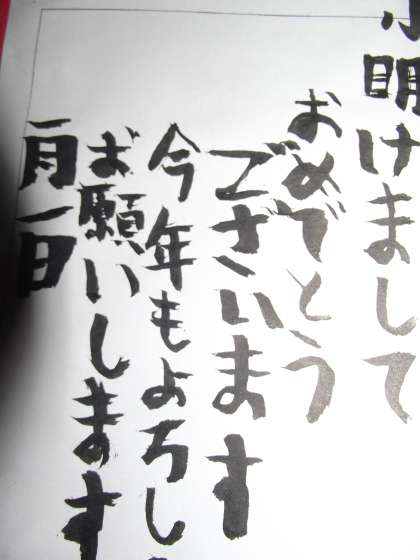 明けまして
おめでとう
ございます
今年もよろし
お願いします
一月一日